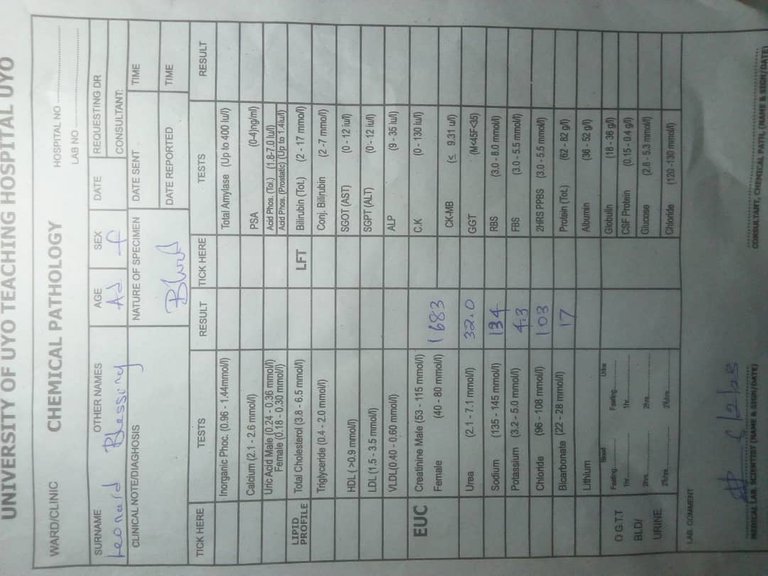 UNIVERSITY OF UYO TEACHING HOSPITAL UYO
CHEMICAL PATHOLOGY
WARD/CLINIC
HOSPITAL NO
LAB NO
SURNAME OTHER NAMES AGE SEX DATE REQUESTING DR
Leonard Blessing Ad f CONSULTANT:
CLINICAL NOTE/DIAGNOSIS NATURE OF SPECIMEN DATE SENT TIME
Blood DATE REPORTED TIME
TICK HERE TESTS RESULT TICK HERE TESTS RESULT
Inorganic Phoc. (0.96 - 1.44mmol/l) Total Amylase (Up to 400 iu/l)
Calcium (2.1 - 2.6 mmol/l) PSA (0-4)ng/ml)
Uric Acid Male (0.24 - 0.36 mmol/l) Acid Phos. (Tot.) (1.8-7.0 iu/l)
Female (0.18 - 0.30 mmol/l) Acid Phos. (Prostatic) (Up to 1.4iu/l)
LIPID PROFILE Total Cholesterol (3.8 - 6.5 mmol/l) LFT Bilirubin (Tot.) (2 - 17 mmol/l)
Triglyceride (0.4 - 2.0 mmol/l) Conj. Bilirubin (2 -7 mmol/l)
HDL ( >0.9 mmol/l) SGOT (AST) (0 - 12 iu/l)
LDL (1.5 - 3.5 mmol/l) SGPT (ALT) (0 - 12 iu/l)
VLDL(0.40 - 0.60 mmol/l) ALP (9 - 35 iu/l)
EUC Creatinine Male (53 - 115 mmol/l) C.K (0 - 130 iu/l)
Female (40 - 80 mmol/l) 1683 CK-MB (≤ 9.31 u/l)
Urea (2.1 - 7.1 mmol/l) 32.0 GGT (M<45F<35)
Sodium (135 - 145 mmol/l) 134 RBS (3.0 - 8.0 mmol/l)
Potassium (3.2 - 5.0 mmol/l) 4.3 FBS (3.0 - 5.5 mmol/l)
Chloride (96 - 108 mmol/l) 103 2HRS PPBS (3.0 - 5.5 mmol/l)
Bicarbonate (22 - 28 mmol/l) 17 Protein (Tot.) (62 - 82 g/l)
Lithium Albumin (36 - 52 g/l)
Globulin (18 - 36 g/l)
O G.T.T Blood Urine CSF Protein (0.15 - 0.4 g/l)
Fasting Fasting
BLD/ 1hr 1hr Glucose (2.8 - 5.3 mmol/l)
2hrs 2hrs
URINE 2½hrs 2½hrs Chloride (120 -130 mmol/l)
LAB. COMMENT
MEDICAL LAB. SCIENTIST (NAME & SIGN/DATE) CONSULTANT, CHEMICAL PATH, (NAME & SIGN/DATE)